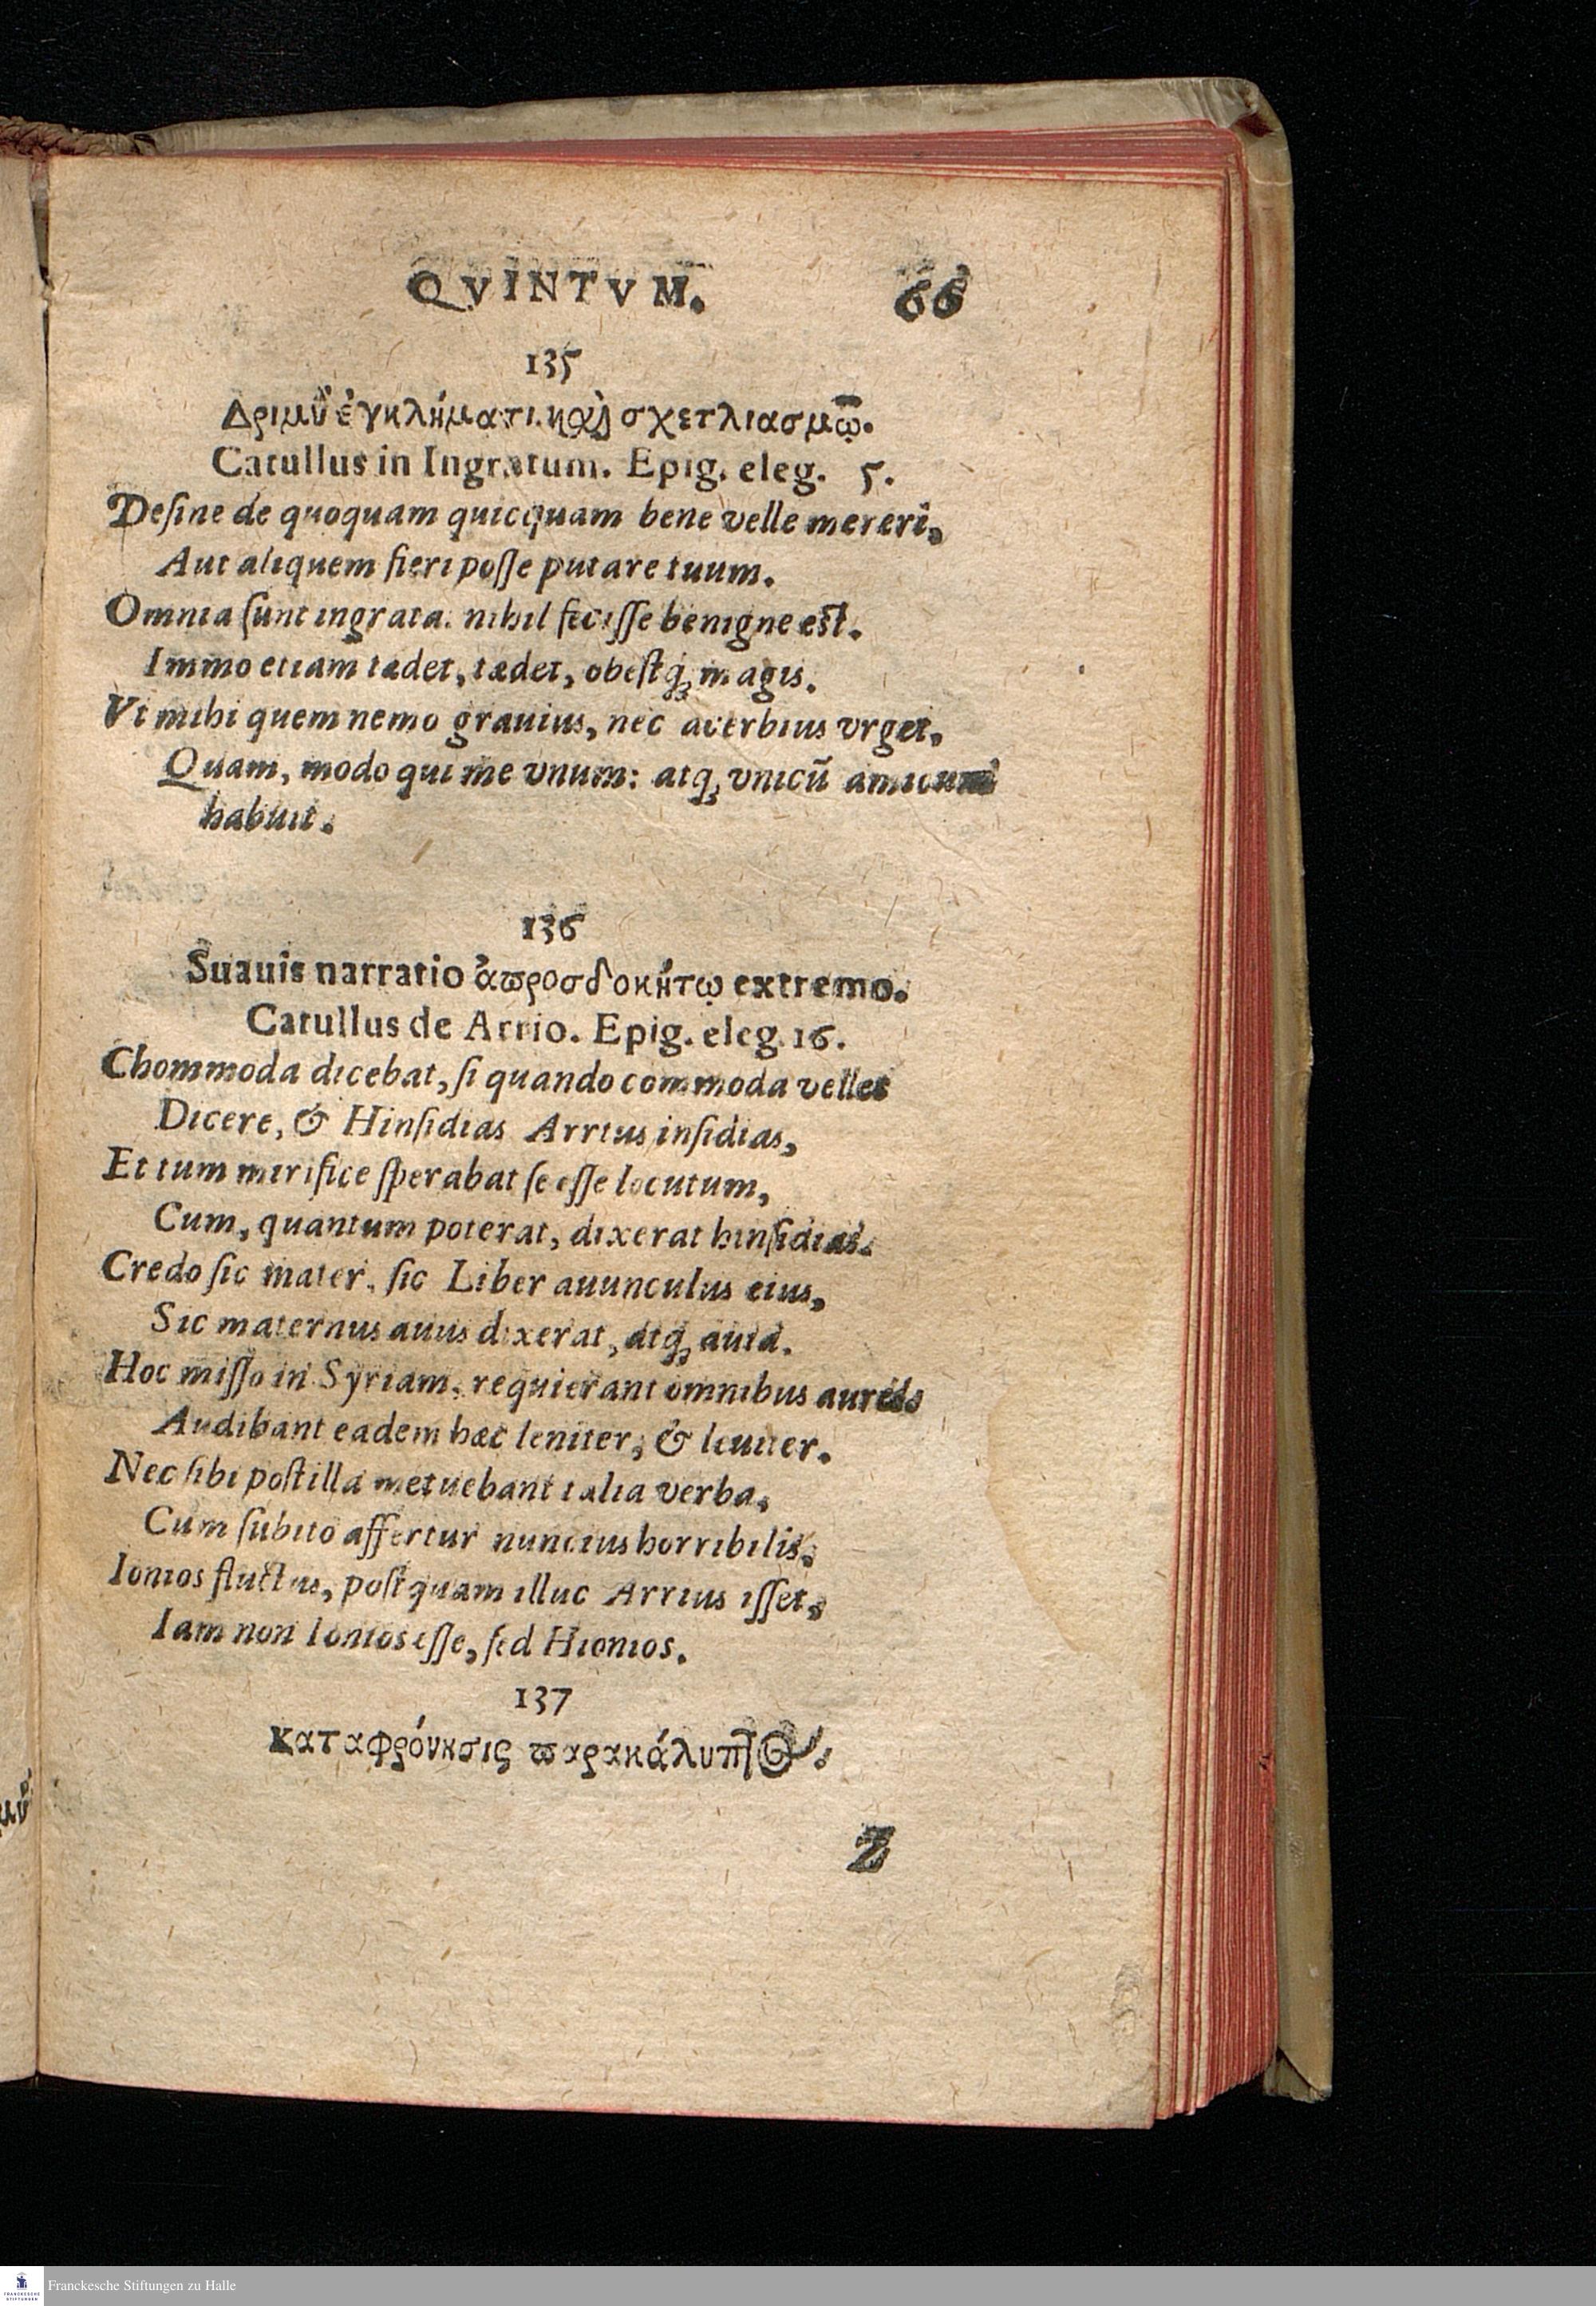 QVINTVM. 66
135
Δριμὺ ἐγκλήματι καὶ σχετλιασμῷ.
Catullus in Ingratum. Epig. eleg. 5.
Deſine de quoquam quicquam bene velle mereri,
Aut aliquem fieri poſſe putare tuum.
Omnia ſunt ingrata. nihil feciſſe benigne est.
Immo etiam tædet, tædet, obeſtq́; magis.
Vt mihi quem nemo grauius, nec acerbius vrget,
Quam, modo qui me vnum: atq; vnicū amicum
habuit.
136
Suauis narratio ἀπροσδοκήτῳ extremo.
Catullus de Arrio. Epig. eleg. 16.
Chommoda dicebat, ſi quando commoda vellet
Dicere, & Hinſidias Arrius inſidias,
Et tum mirifice ſperabat ſe eſſe locutum,
Cum, quantum poterat, dixerat hinſidias.
Credo ſic mater, ſic Liber auunculus eius,
Sic maternus auus dixerat, atq; auia.
Hoc miſſo in Syriam, requierant omnibus aures
Audibant eadem hæc leniter, & leuiter.
Nec ſibi poſtilla metuebant talia verba,
Cum ſubito affertur nuncius horribilis.
Ionios fluctus, poſtquam illuc Arrius iſſet,
Iam non Ionios eſſe, ſed Hionios.
137
Καταφρόνησις παρακάλυπτος.
Z
μυ
Franckesche Stiftungen zu Halle